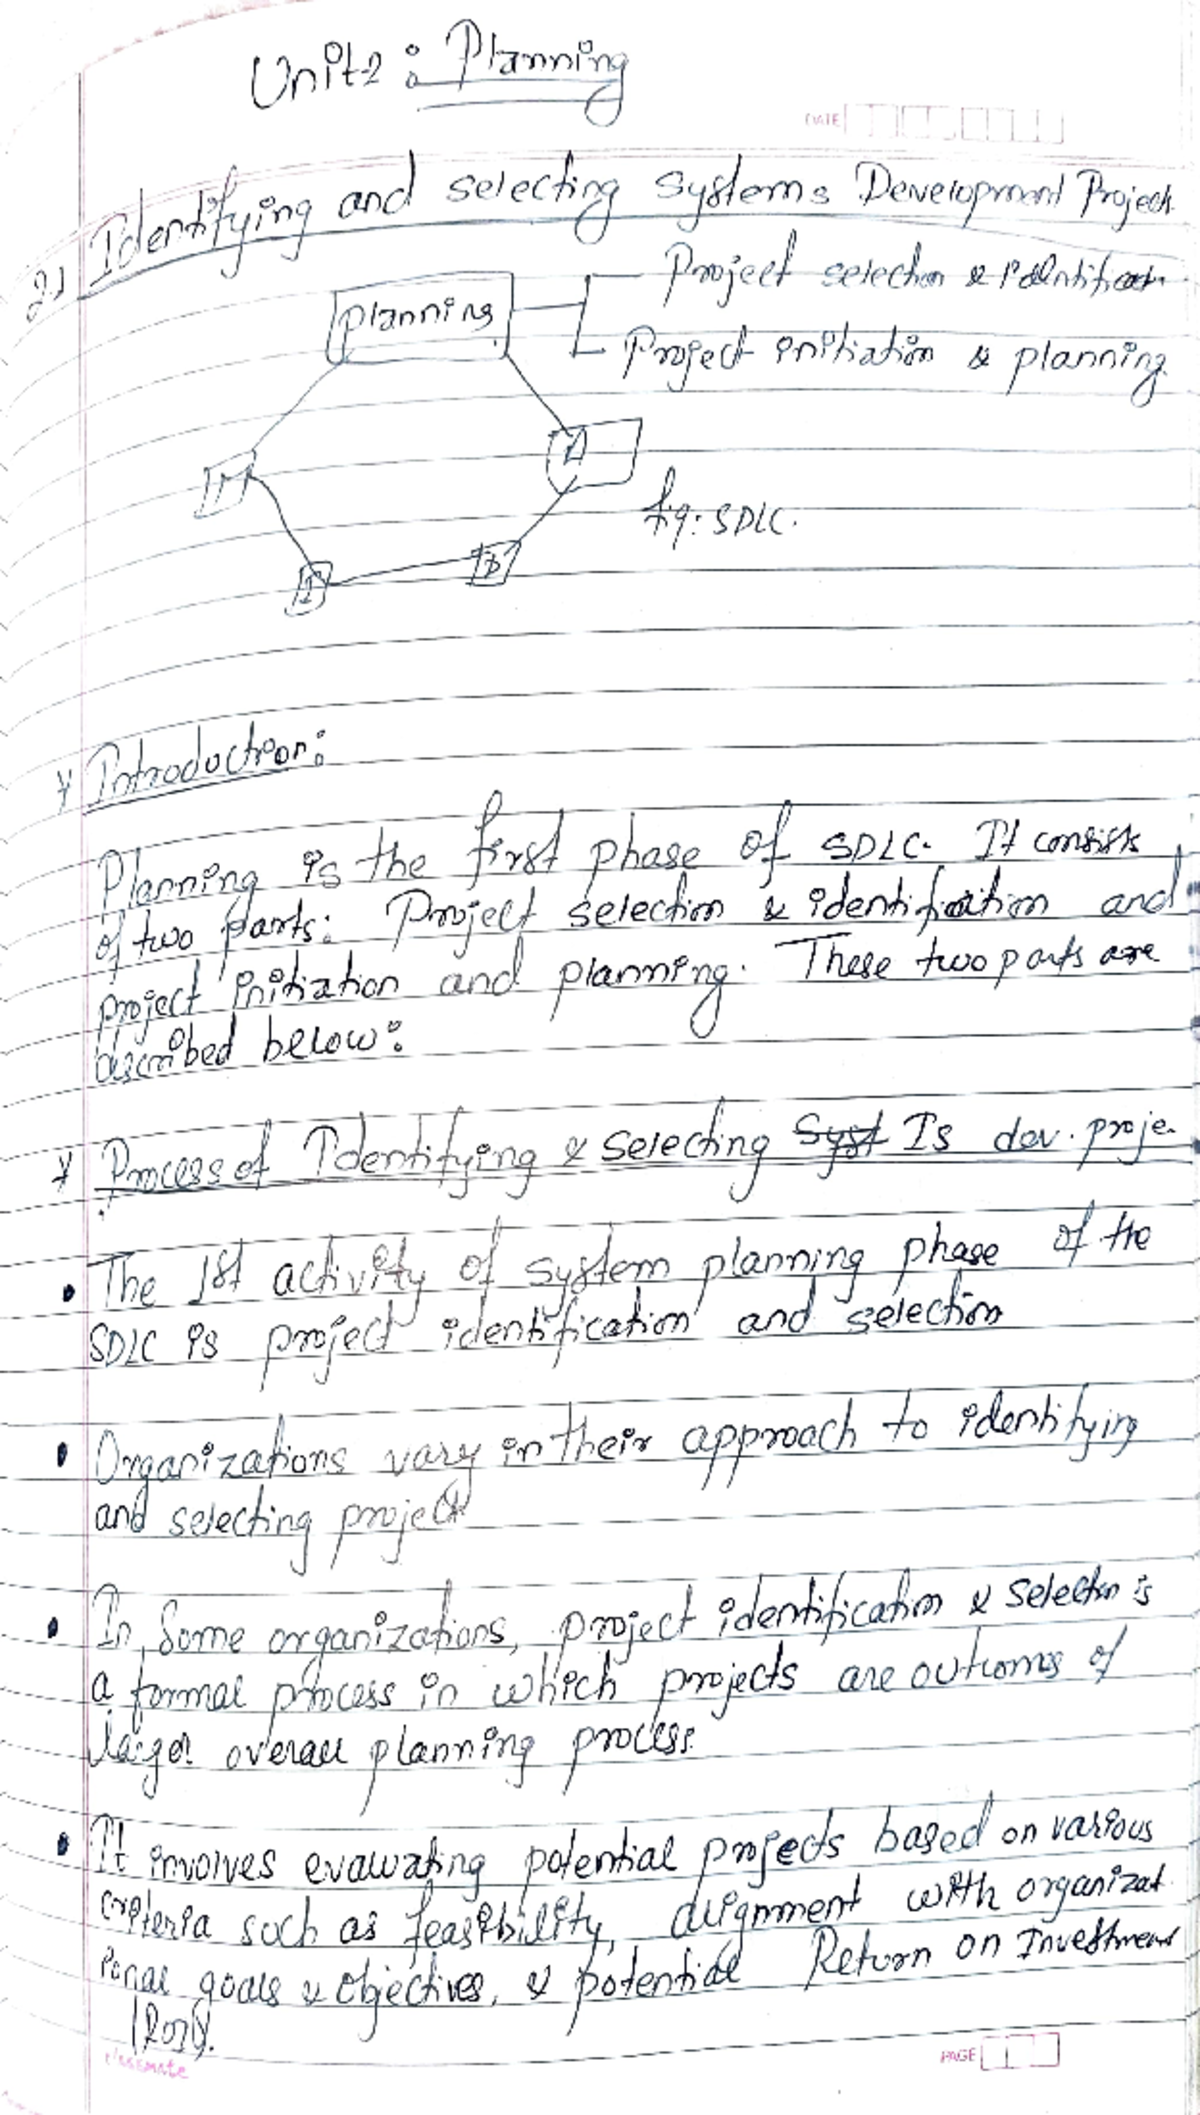 Unit-2 : Planning
DATE
2.1 Identifying and selecting systems Development Project
Planning
Project selection & Identificat.
Project initiation & planning.
M
A
fig: SDLC.
I
D
* Introduction:
Planning is the first phase of SDLC. It consists
of two parts: Project selection & identification and
project initiation and planning. These two parts are
described below:
* Process of Identifying & selecting Syst Is dev. proje.
• The 1st activity of system planning phase of the
SDLC is project identification and selection
• Organizations vary in their approach to identifying
and selecting project
• In Some organizations, project identification & selection is
a formal process in which projects are outcomes of
larger overall planning process.
• It involves evaluating potential projects based on various
criteria such as feasibility, alignment with organizat
ional goals & objectives, & potential Return on Investment
(ROI).
classmate
PAGE